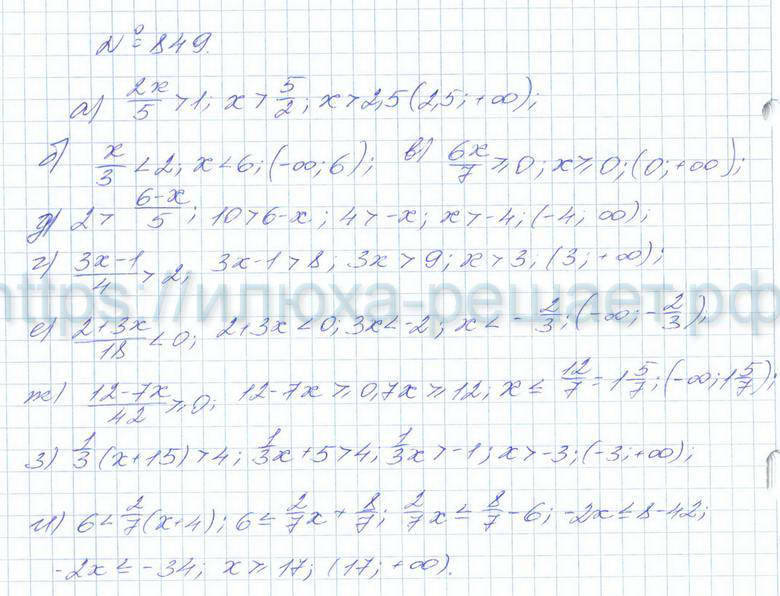 № 849.
а) 2x/5 > 1; x > 5/2; x > 2,5 (2,5; +∞);
б) x/3 < 2; x < 6; (-∞; 6); в) 6x/7 ≥ 0; x ≥ 0; (0; +∞);
д) 2 > 6-x/5; 10 > 6-x; 4 > -x; x > -4; (-4; ∞);
г) 3x-1/4 > 2; 3x-1 > 8; 3x > 9; x > 3; (3; +∞);
https://илюха-решает.рф
е) 2+3x/18 < 0; 2+3x < 0; 3x < -2; x < -2/3; (-∞; -2/3);
ж) 12-7x/42 ≥ 0; 12-7x ≥ 0, 7x ≥ 12; x ≤ 12/7 = 1 5/7; (-∞; 1 5/7);
з) 1/3 (x+15) > 4; 1/3 x + 5 > 4; 1/3 x > -1; x > -3; (-3; +∞);
и) 6 < 2/7 (x+4); 6 ≤ 2/7 x + 8/7; 2/7 x ≤ 8/7 - 6; -2x ≤ 8-42;
-2x ≤ -34; x ≥ 17; (17; +∞).